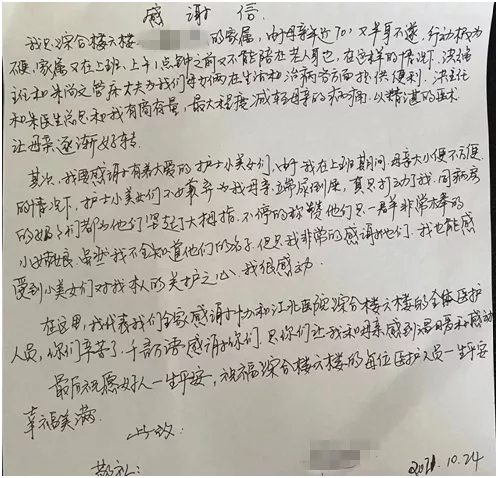 感谢信
我是综合楼六楼 的家属,由于母亲年近70,又半身不遂,行动极为
不便,家属又在上班、上午11点钟之前又不能陪在老人身边,在这样的情况下,决主
任和朱尚文管床大夫为我们母女俩在生活和治病等方面提供便利,决主任
和朱医生总是和我有商有量,最大程度减轻母亲的病痛,以精湛的医术
让母亲逐渐好转.
其次,我要感谢有着大爱的护士小美女们,由于我在上班期间,母亲大小便不方便
的情况下,护士小美女们不嫌弃为我母亲端屎倒尿,真是打动了我,同病房
的奶奶们都为他们竖起了大拇指,不停的称赞他们是一群非常棒的
小姑娘.虽然我不全知道他们的名字,但是我非常的感谢她们.我也能感
受到小美女们对我本人的关护之心.我很感动.
在这里,我代表我们全家感谢协和江北医院综合楼六楼的全体医护
人员,你们辛苦了,千言万语感谢你们.是你们让我和母亲感到温暖和感动
最后祝愿好人一生平安,祝福综合楼六楼的每位医护人员一生平安
幸福美满.
此致:
敬礼: 2021.10.24